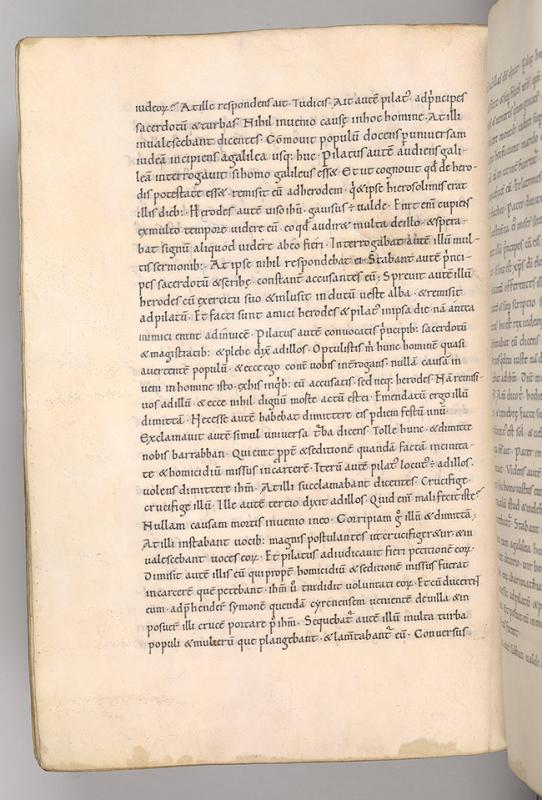 iudeoꝝ? At ille respondens ait· Tu dicis· Ait autē pilatꝰ adp̄ncipes
sacerdotū & turbas· Nihil inuenio cause inhoc homine· At illi
inualescebant dicentes· Cōmouit populū docens ꝑuniuersam
iudeā incipiens agalilea usq; huc· Pilatus autē audiens gali-
leā interrogauit si homo galileus esset· Et ut cognouit qđ de hero-
dis potestate esset· remisit eū adherodem· q̇ & ipse hierosolimis erat
illis dieb;· Herodes autē uiso ihū· gauisus ÷ ualde· Erat eni cupiens
exmulto tempore uidere eū· eo qđ audiret multa deillo· & spera-
bat signū aliquod uidere abeo fieri· Interrogabat autē illū mul-
tis sermonib;· At ipse nihil respondebat ei· Stabant autē p̄nci-
pes sacerdotū & scribe· constant accusantes eū· Spreuit autē illū
herodes cū exercitu suo & inlusit indutū ueste alba· & remisit
adpilatū· Et facti sunt amici herodes & pilatꝰ inipsa die· nā antea
inimici erant adinuicē· Pilatus autē conuocatis p̄ncipib; sacerdotū
& magistratib;· & plebe dix̄ adillos· Optulistis m̄ hunc hominē quasi
auertentē populū· & ecce ego corā uobis int̄rogans· nullā causā in
ueni inhomine isto· exhis inq̇b; eū accusatis· sed neq; herodes· Nā remisi
uos adillū· & ecce nihil dignū morte actū est ei· Emendatū ergo illū
dimittā· Necesse autē habebat dimittere eis ꝑdiem festū unū·
Exclamauit autē simul uniuersa t̄ba dicens· Tolle hunc· & dimitte
nobis barrabban· Qui erat ꝓpt̄ & seditionē quandā factā inciuita-
te & homicidiū missus incarcerē· Iterū autē pilatꝰ locutꝰ ÷ adillos·
uolens dimittere ihm̄· At illi succlamabant dicentes· Crucifige
crucifige illū· Ille autē tertio dixit adillos· Quid eni mali fecit iste?
Nullam causam mortis inuenio ineo· Corripiam ḡ illū & dimittā·
At illi instabant uocib; magnis postulantes ut crucifigeretur· & in
ualescebant uoces eoꝝ· Et pilatus adiudicauit fieri petitionē eoꝝ·
Dimisit autē illis eū qui propt̄ homicidiū & seditionē missus fuerat
incarcerē quē petebant· ihm̄ ū tradidit uoluntati eoꝝ· Et cū ducerēt
eum· adp̄hendert̄ symonē quendā cyrenensem uenientē deuilla· & in
posuert̄ illi crucē portare p̄ ihm̄· Sequebat̄ autē illū multa turba
populi & mulierū que plangebant· & lam̄tabant̄ eū· Conuersus